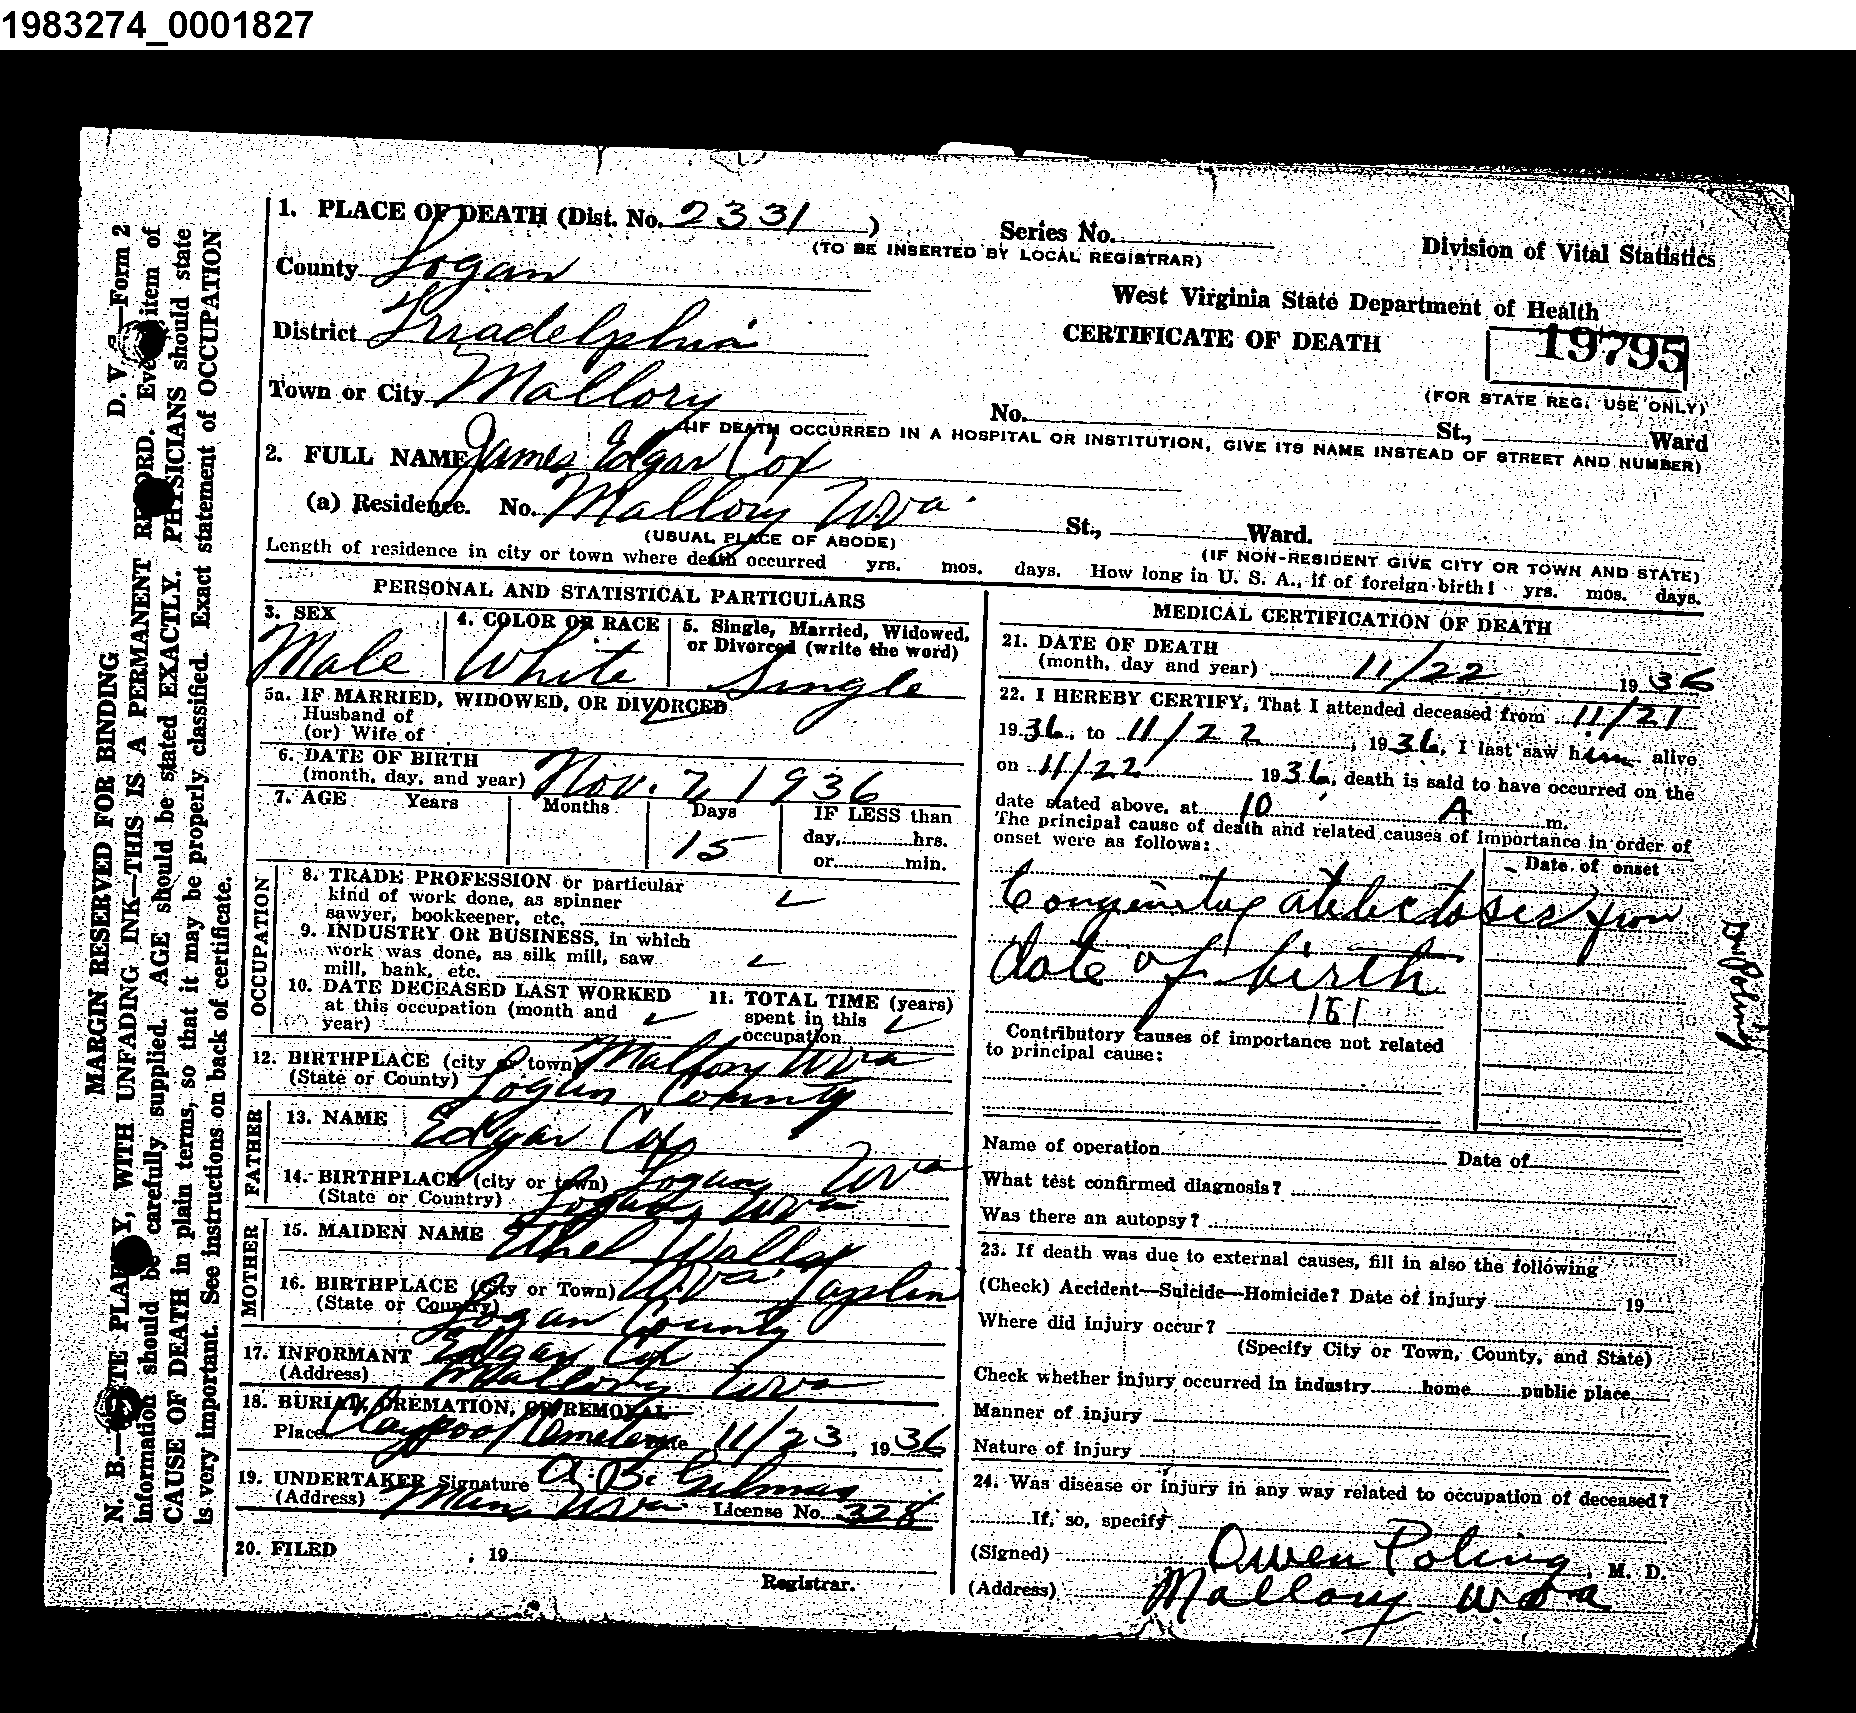 1983274_0001827
1. PLACE OF DEATH (Dist. No. 2331 )
Series No.
(TO BE INSERTED BY LOCAL REGISTRAR)
Division of Vital Statistics
County Logan
West Virginia State Department of Health
District Triadelphia
CERTIFICATE OF DEATH
19795
(FOR STATE REG. USE ONLY)
Town or City Mallory
No. St., Ward
(IF DEATH OCCURRED IN A HOSPITAL OR INSTITUTION, GIVE ITS NAME INSTEAD OF STREET AND NUMBER)
2. FULL NAME James Edgar Cox
(a) Residence. No. Mallory Wva. St., Ward.
(USUAL PLACE OF ABODE)
(IF NON-RESIDENT GIVE CITY OR TOWN AND STATE)
Length of residence in city or town where death occurred yrs. mos. days. How long in U. S. A., if of foreign birth? yrs. mos. days.
PERSONAL AND STATISTICAL PARTICULARS
3. SEX
Male
4. COLOR OR RACE
White
5. Single, Married, Widowed,
or Divorced (write the word)
Single
5a. IF MARRIED, WIDOWED, OR DIVORCED
Husband of
(or) Wife of
6. DATE OF BIRTH
(month, day, and year) Nov. 7, 1936
7. AGE Years Months Days IF LESS than
15 day, hrs.
or min.
OCCUPATION
8. TRADE PROFESSION or particular
kind of work done, as spinner
sawyer, bookkeeper, etc.
9. INDUSTRY OR BUSINESS, in which
work was done, as silk mill, saw
mill, bank, etc.
10. DATE DECEASED LAST WORKED
at this occupation (month and
year)
11. TOTAL TIME (years)
spent in this
occupation
12. BIRTHPLACE (city or town) Mallory Wva
(State or County) Logan County
FATHER
13. NAME Edgar Cox
14. BIRTHPLACE (city or town) Logan Wva
(State or Country) Logan, Wva
MOTHER
15. MAIDEN NAME Ethel
16. BIRTHPLACE (City or Town) Wva. Taplin
(State or Country) Logan County
17. INFORMANT Edgar Cox
(Address) Mallory Wva
18. BURIAL, CREMATION, OR REMOVAL
Place Claypool Cemetery Date 11/23, 1936
19. UNDERTAKER Signature
(Address) Man, Wva License No. 328
20. FILED , 19
Registrar.
MEDICAL CERTIFICATION OF DEATH
21. DATE OF DEATH
(month, day and year) 11/22 1936
22. I HEREBY CERTIFY, That I attended deceased from 11/21
1936, to 11/22, 1936, I last saw him alive
on 11/22 1936, death is said to have occurred on the
date stated above, at 10 A m.
The principal cause of death and related causes of importance in order of
onset were as follows:
Date of onset
atelectasis from
date of birth
161
Contributory causes of importance not related
to principal cause:
Name of operation Date of
What test confirmed diagnosis?
Was there an autopsy?
23. If death was due to external causes, fill in also the following
(Check) Accident—Suicide—Homicide? Date of injury 19
Where did injury occur?
(Specify City or Town, County, and State)
Check whether injury occurred in industry home public place
Manner of injury
Nature of injury
24. Was disease or injury in any way related to occupation of deceased?
If, so, specify
(Signed) Owen Poling, M. D.
(Address) Mallory W. Va
Dr Poling
D. V. —Form 2
MARGIN RESERVED FOR BINDING
N. B.— WITH UNFADING INK—THIS IS A PERMANENT item of
information should be carefully supplied. AGE should be stated EXACTLY. PHYSICIANS should state
CAUSE OF DEATH in plain terms, so that it may be properly classified. Exact statement of OCCUPATION
is very important. See instructions on back of certificate.